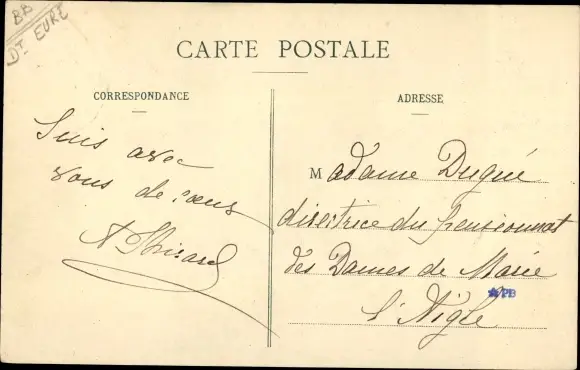 BB
Dt EURE
CARTE POSTALE
CORRESPONDANCE
ADRESSE
Suis avec
vous de cœur
Madame Dugué
directrice du pensionnat
des Dames de Marie
l'Aigle
PB